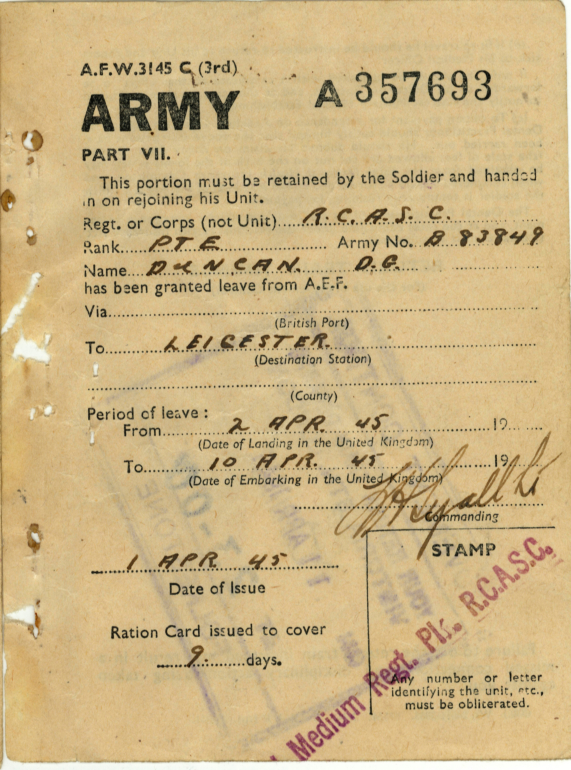 A.F.W.3145 C (3rd)
ARMY
A 357693
PART VII.
This portion must be retained by the Soldier and handed
in on rejoining his Unit.
Regt. or Corps (not Unit) R.C.A.S.C.
Rank PTE Army No. B 83849
Name DUNCAN. D.G.
has been granted leave from A.E.F.
Via
(British Port)
To LEICESTER
(Destination Station)
(County)
Period of leave :
From 2 APR. 45 19
(Date of Landing in the United Kingdom)
To 10 APR. 45 19
(Date of Embarking in the United Kingdom)
Commanding
1 APR 45
Date of Issue
STAMP
Medium Regt. Pl., R.C.A.S.C.
Ration Card issued to cover
9 days.
Any number or letter
identifying the unit, etc.,
must be obliterated.